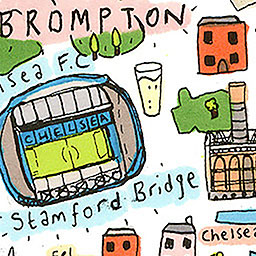 BROMPTON
lsea F.C
CHELSEA
Stamford Bridge
Chelsea